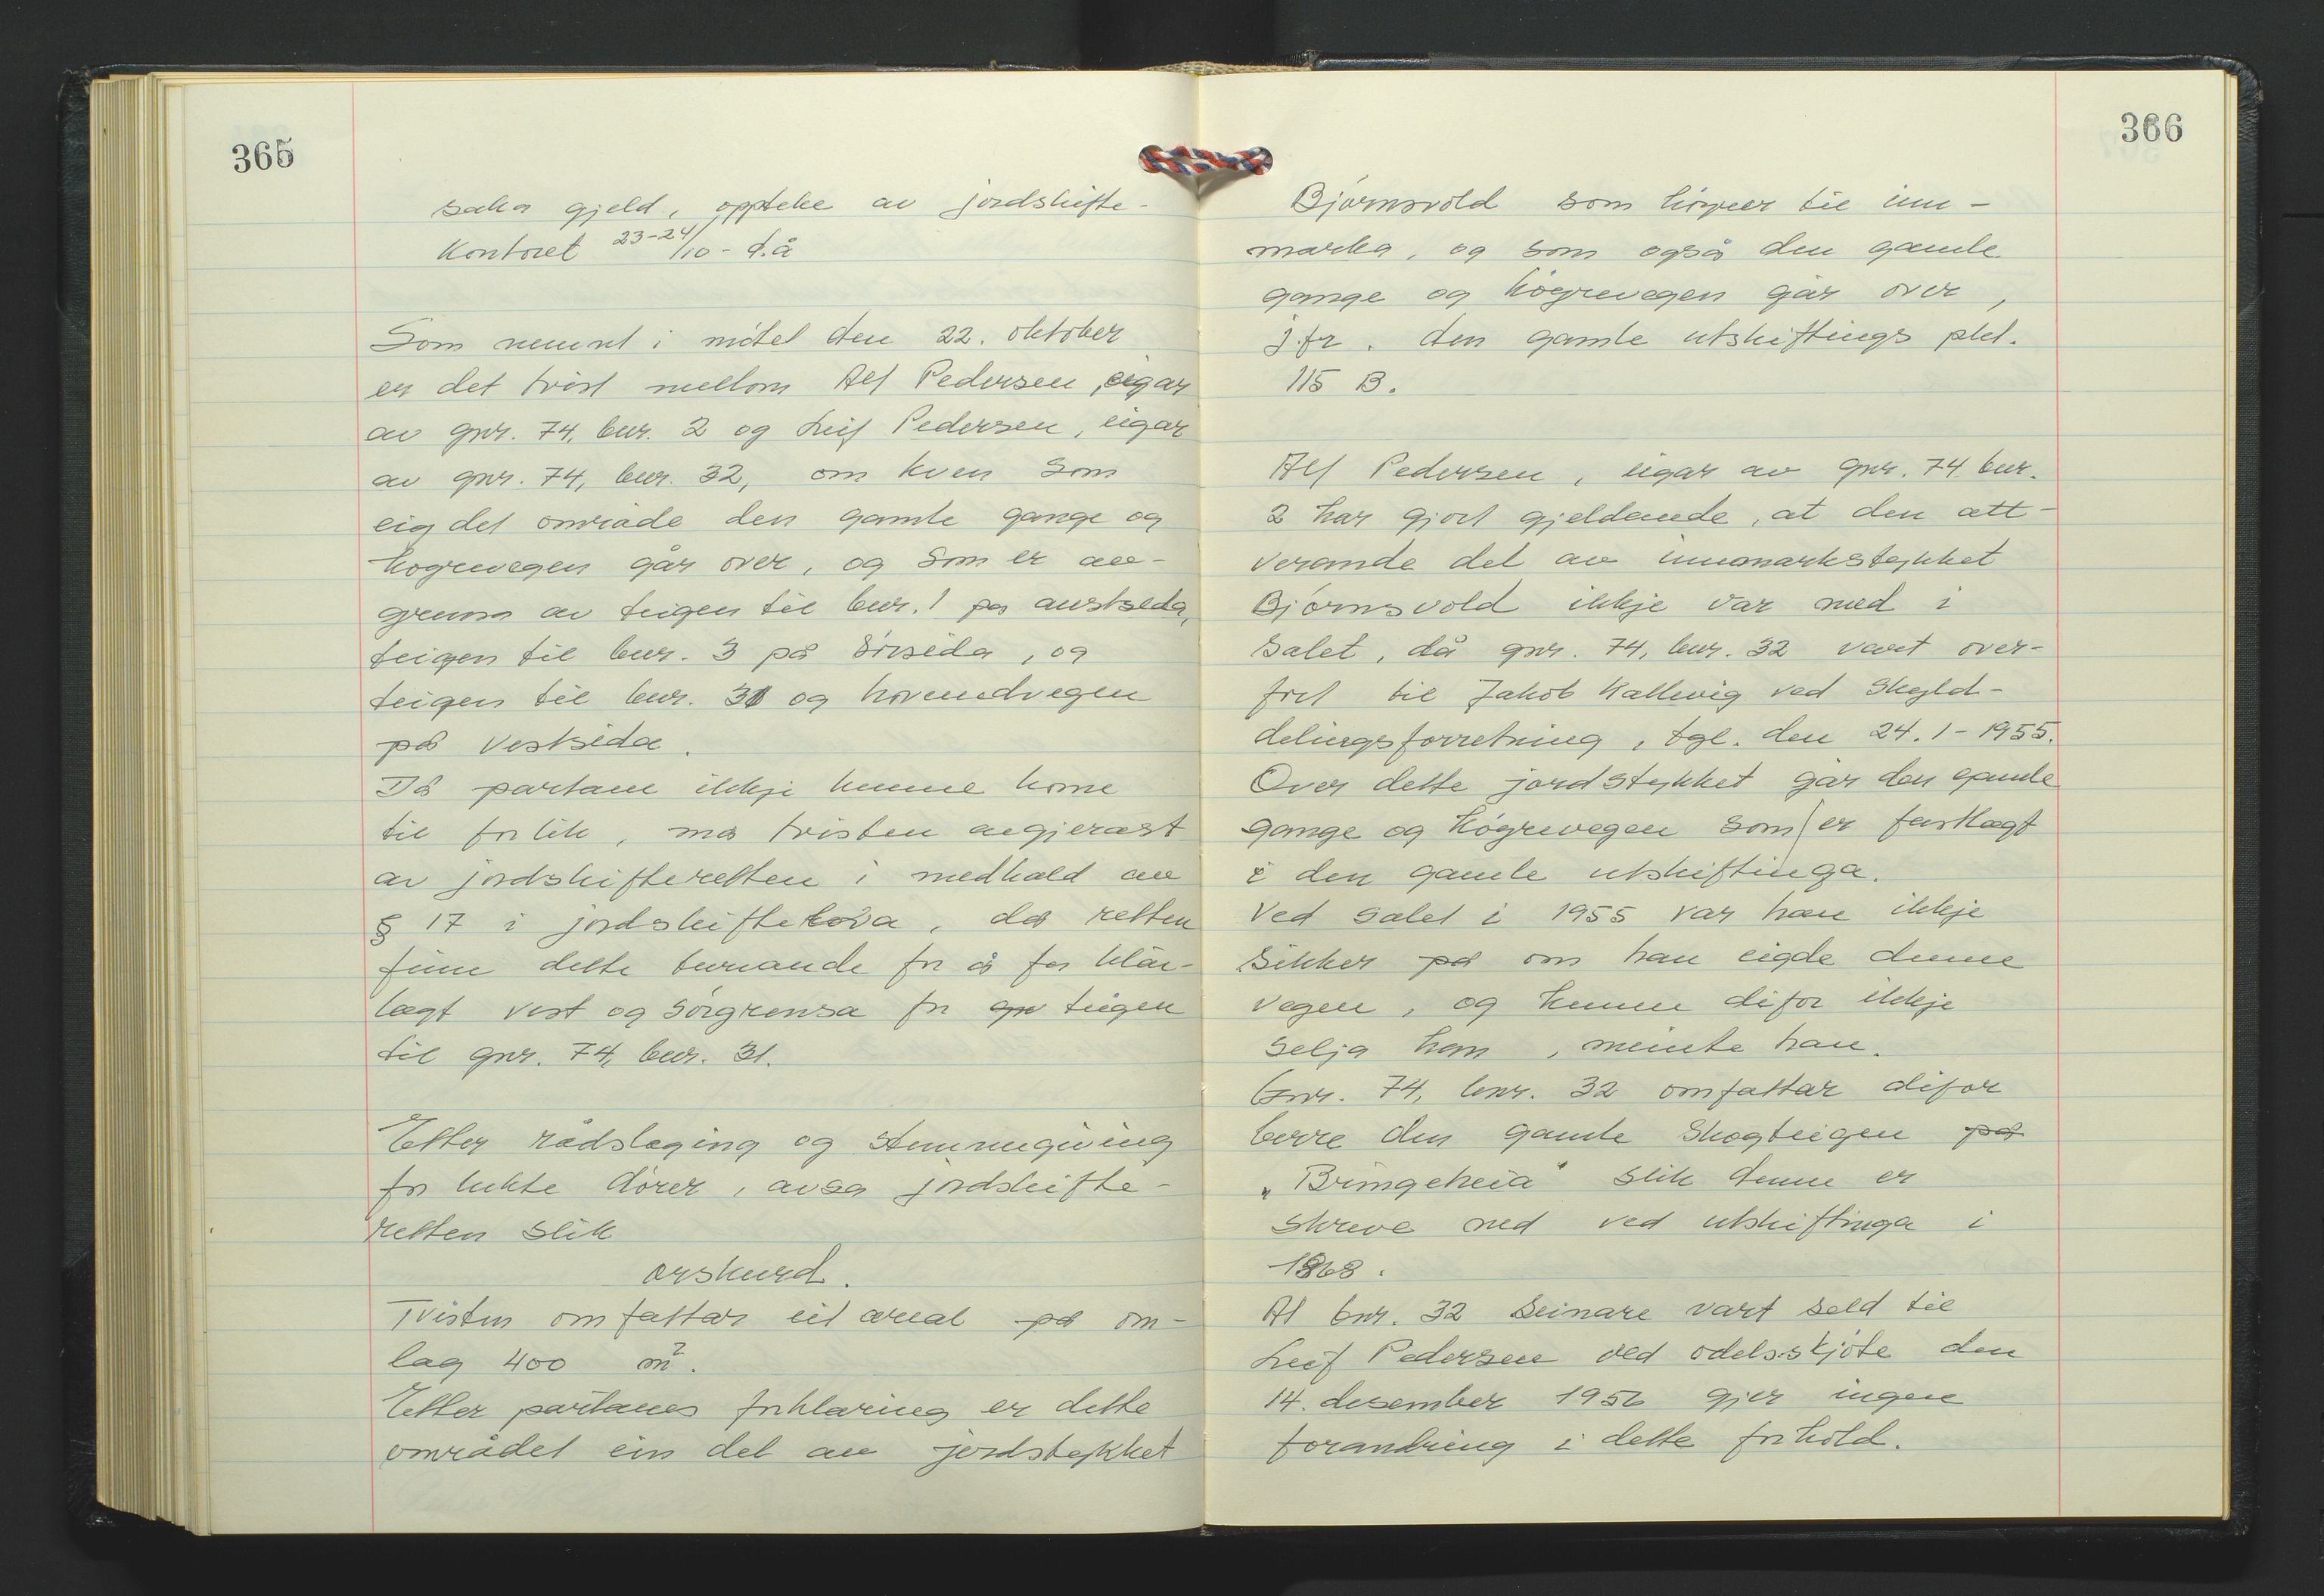 365
saka gjeld, oppteke av jordskifte-
kontoret 23-24/10 - d.å
Som nemnt i møtet den 22. oktober
er det tvist mellom Alf Pedersen, eigar
av gnr. 74, bnr. 2 og Leif Pedersen, eigar
av gnr. 74, bnr. 32, om kven som
eig det område den gamle gange og
høgrevegen går over, og som er av-
grensa av teigen til bnr. 1 på austsida,
teigen til bnr. 3 på sørsida, og
teigen til bnr. 31 og hovudvegen
på vestsida.
Då partane ikkje kunne kome
til forlik, må tvisten avgjerast
av jordskifteretten i medhald av
§ 17 i jordskiftelova, då retten
finn dette turvande for å få klår-
lagt vest og sørgrensa for gnr teigen
til gnr. 74, bnr. 31.
Etter rådslaging og stemmegiving
for lukte dører, avsa jordskifte-
retten slik
orskurd.
Tvisten omfattar eit areal på om-
lag 400 m².
Etter partanes forklaring er dette
området ein del av jordstykket
366
Bjørnsvold som høyrer til inn-
marka, og som også den gamle
gange og høgrevegen går over,
jfr. den gamle utskiftings pkt.
115 B.
Alf Pedersen, eigar av gnr. 74 bnr.
2 har gjort gjeldande, at den att-
verande del av innmarkstykket
Bjørnsvold ikkje var med i
salet, då gnr. 74, bnr. 32 vart over-
ført til Jakob Kallevig ved skyld-
delingsforretning, tgl. den 24.1-1955.
Over dette jordstykket går den gamle
gange og høgrevegen som er fastlagt
i den gamle utskiftinga.
Ved salet i 1955 var han ikkje
sikker på om han eigde denne
vegen, og kunne difor ikkje
selja ham, meinte han.
Gnr. 74, bnr. 32 omfattar difor
berre den gamle skogteigen på
"Bringeheia" slik denne er
skreve ned ved utskiftinga i
1868.
At bnr. 32 seinare vart seld til
Leif Pedersen ved odelsskjøte den
14. desember 1956 gjer ingen
forandring i dette forhold.